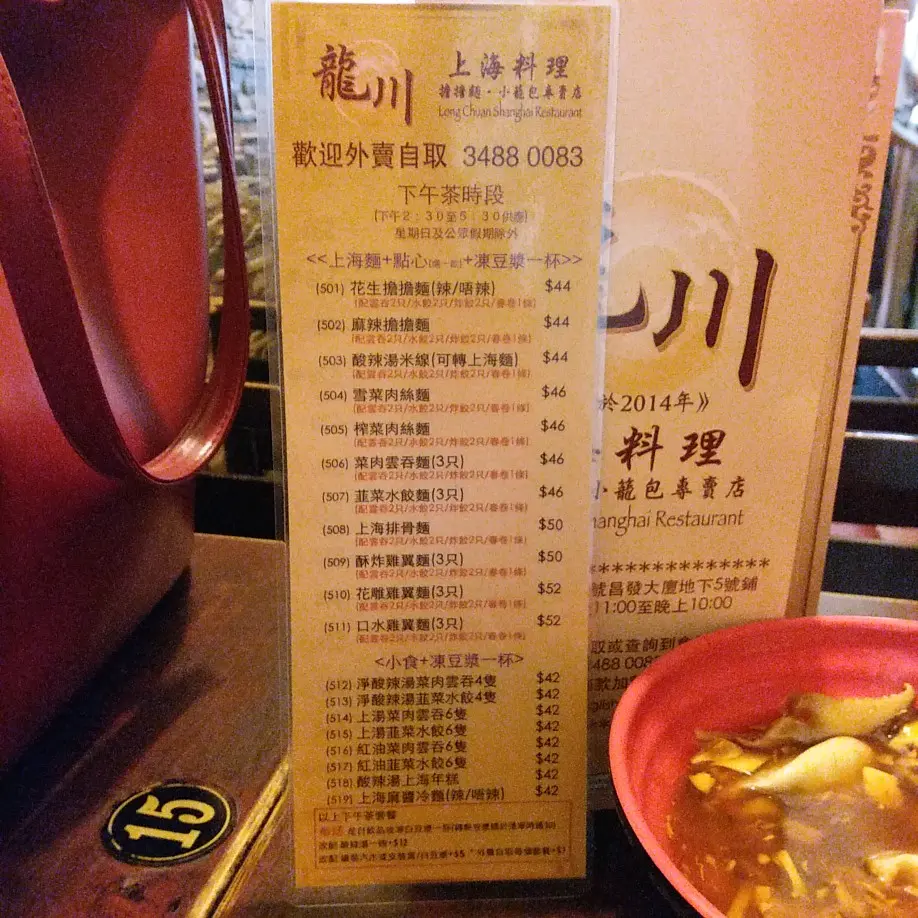 龍川
上海料理
擔擔麵·小籠包專賣店
Long Chuan Shanghai Restaurant
歡迎外賣自取 3488 0083
下午茶時段
(下午2:30至5:30供應)
星期日及公眾假期除外
<<上海麵+點心(揀一款)+凍豆漿一杯>>
(501) 花生擔擔麵(辣/唔辣) $44
(配雲吞2只/水餃2只/炸餃2只/春卷1條)
(502) 麻辣擔擔麵 $44
(配雲吞2只/水餃2只/炸餃2只/春卷1條)
(503) 酸辣湯米線(可轉上海麵) $44
(配雲吞2只/水餃2只/炸餃2只/春卷1條)
(504) 雪菜肉絲麵 $46
(配雲吞2只/水餃2只/炸餃2只/春卷1條)
(505) 榨菜肉絲麵 $46
(配雲吞2只/水餃2只/炸餃2只/春卷1條)
(506) 菜肉雲吞麵(3只) $46
(配雲吞2只/水餃2只/炸餃2只/春卷1條)
(507) 韮菜水餃麵(3只) $46
(配雲吞2只/水餃2只/炸餃2只/春卷1條)
(508) 上海排骨麵 $50
(配雲吞2只/水餃2只/炸餃2只/春卷1條)
(509) 酥炸雞翼麵(3只) $50
(配雲吞2只/水餃2只/炸餃2只/春卷1條)
(510) 花雕雞翼麵(3只) $52
(配雲吞2只/水餃2只/炸餃2只/春卷1條)
(511) 口水雞翼麵(3只) $52
(配雲吞2只/水餃2只/炸餃2只/春卷1條)
<小食+凍豆漿一杯>
(512) 淨酸辣湯菜肉雲吞4隻 $42
(513) 淨酸辣湯韮菜水餃4隻 $42
(514) 上湯菜肉雲吞6隻 $42
(515) 上湯韮菜水餃6隻 $42
(516) 紅油菜肉雲吞6隻 $42
(517) 紅油韮菜水餃6隻 $42
(518) 酸辣湯上海年糕 $42
(519) 上海麻醬冷麵(辣/唔辣) $42
以上下午茶套餐
+$12
+$5
15
川
於2014年》
料理
小籠包專賣店
anghai Restaurant
**************
號昌發大廈地下5號鋪
11:00至晚上10:00
取或查詢
488 008